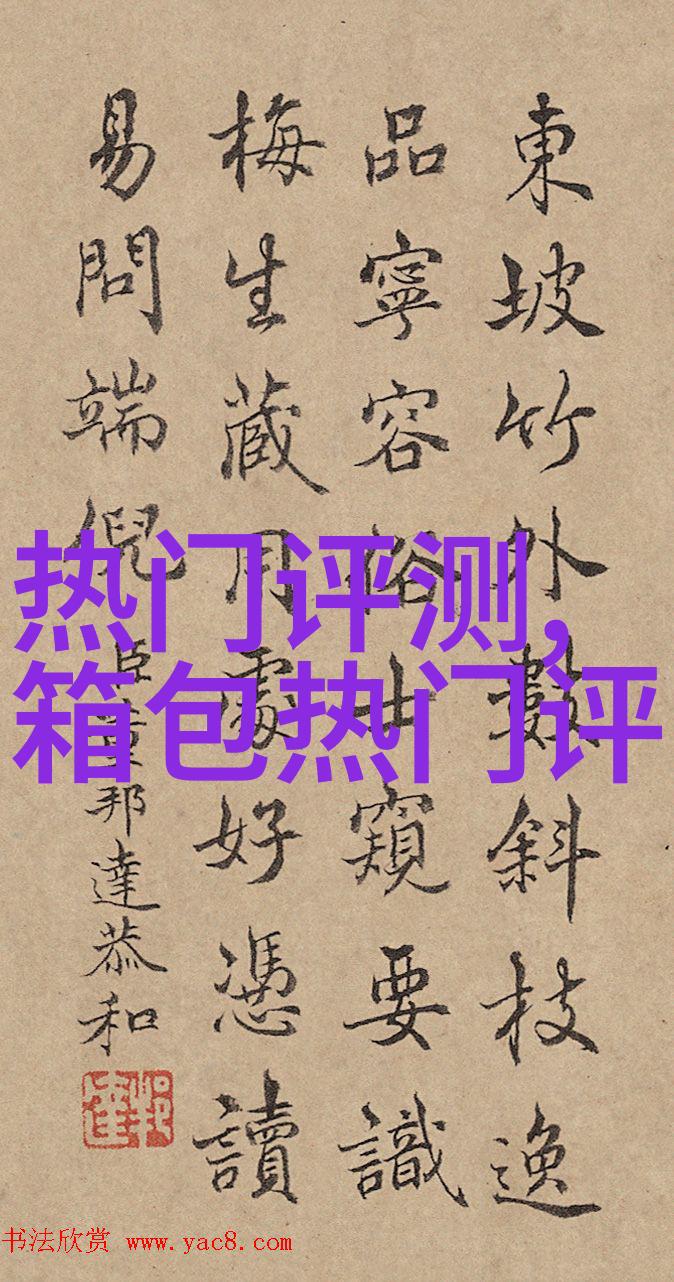 東坡竹外數斜枝逸
品寧容俗士窺要識
梅生藏用處好憑讀
易問端倪
臣董邦達恭和
热门评测,
箱包热门评
书法欣赏 www.yac8.com